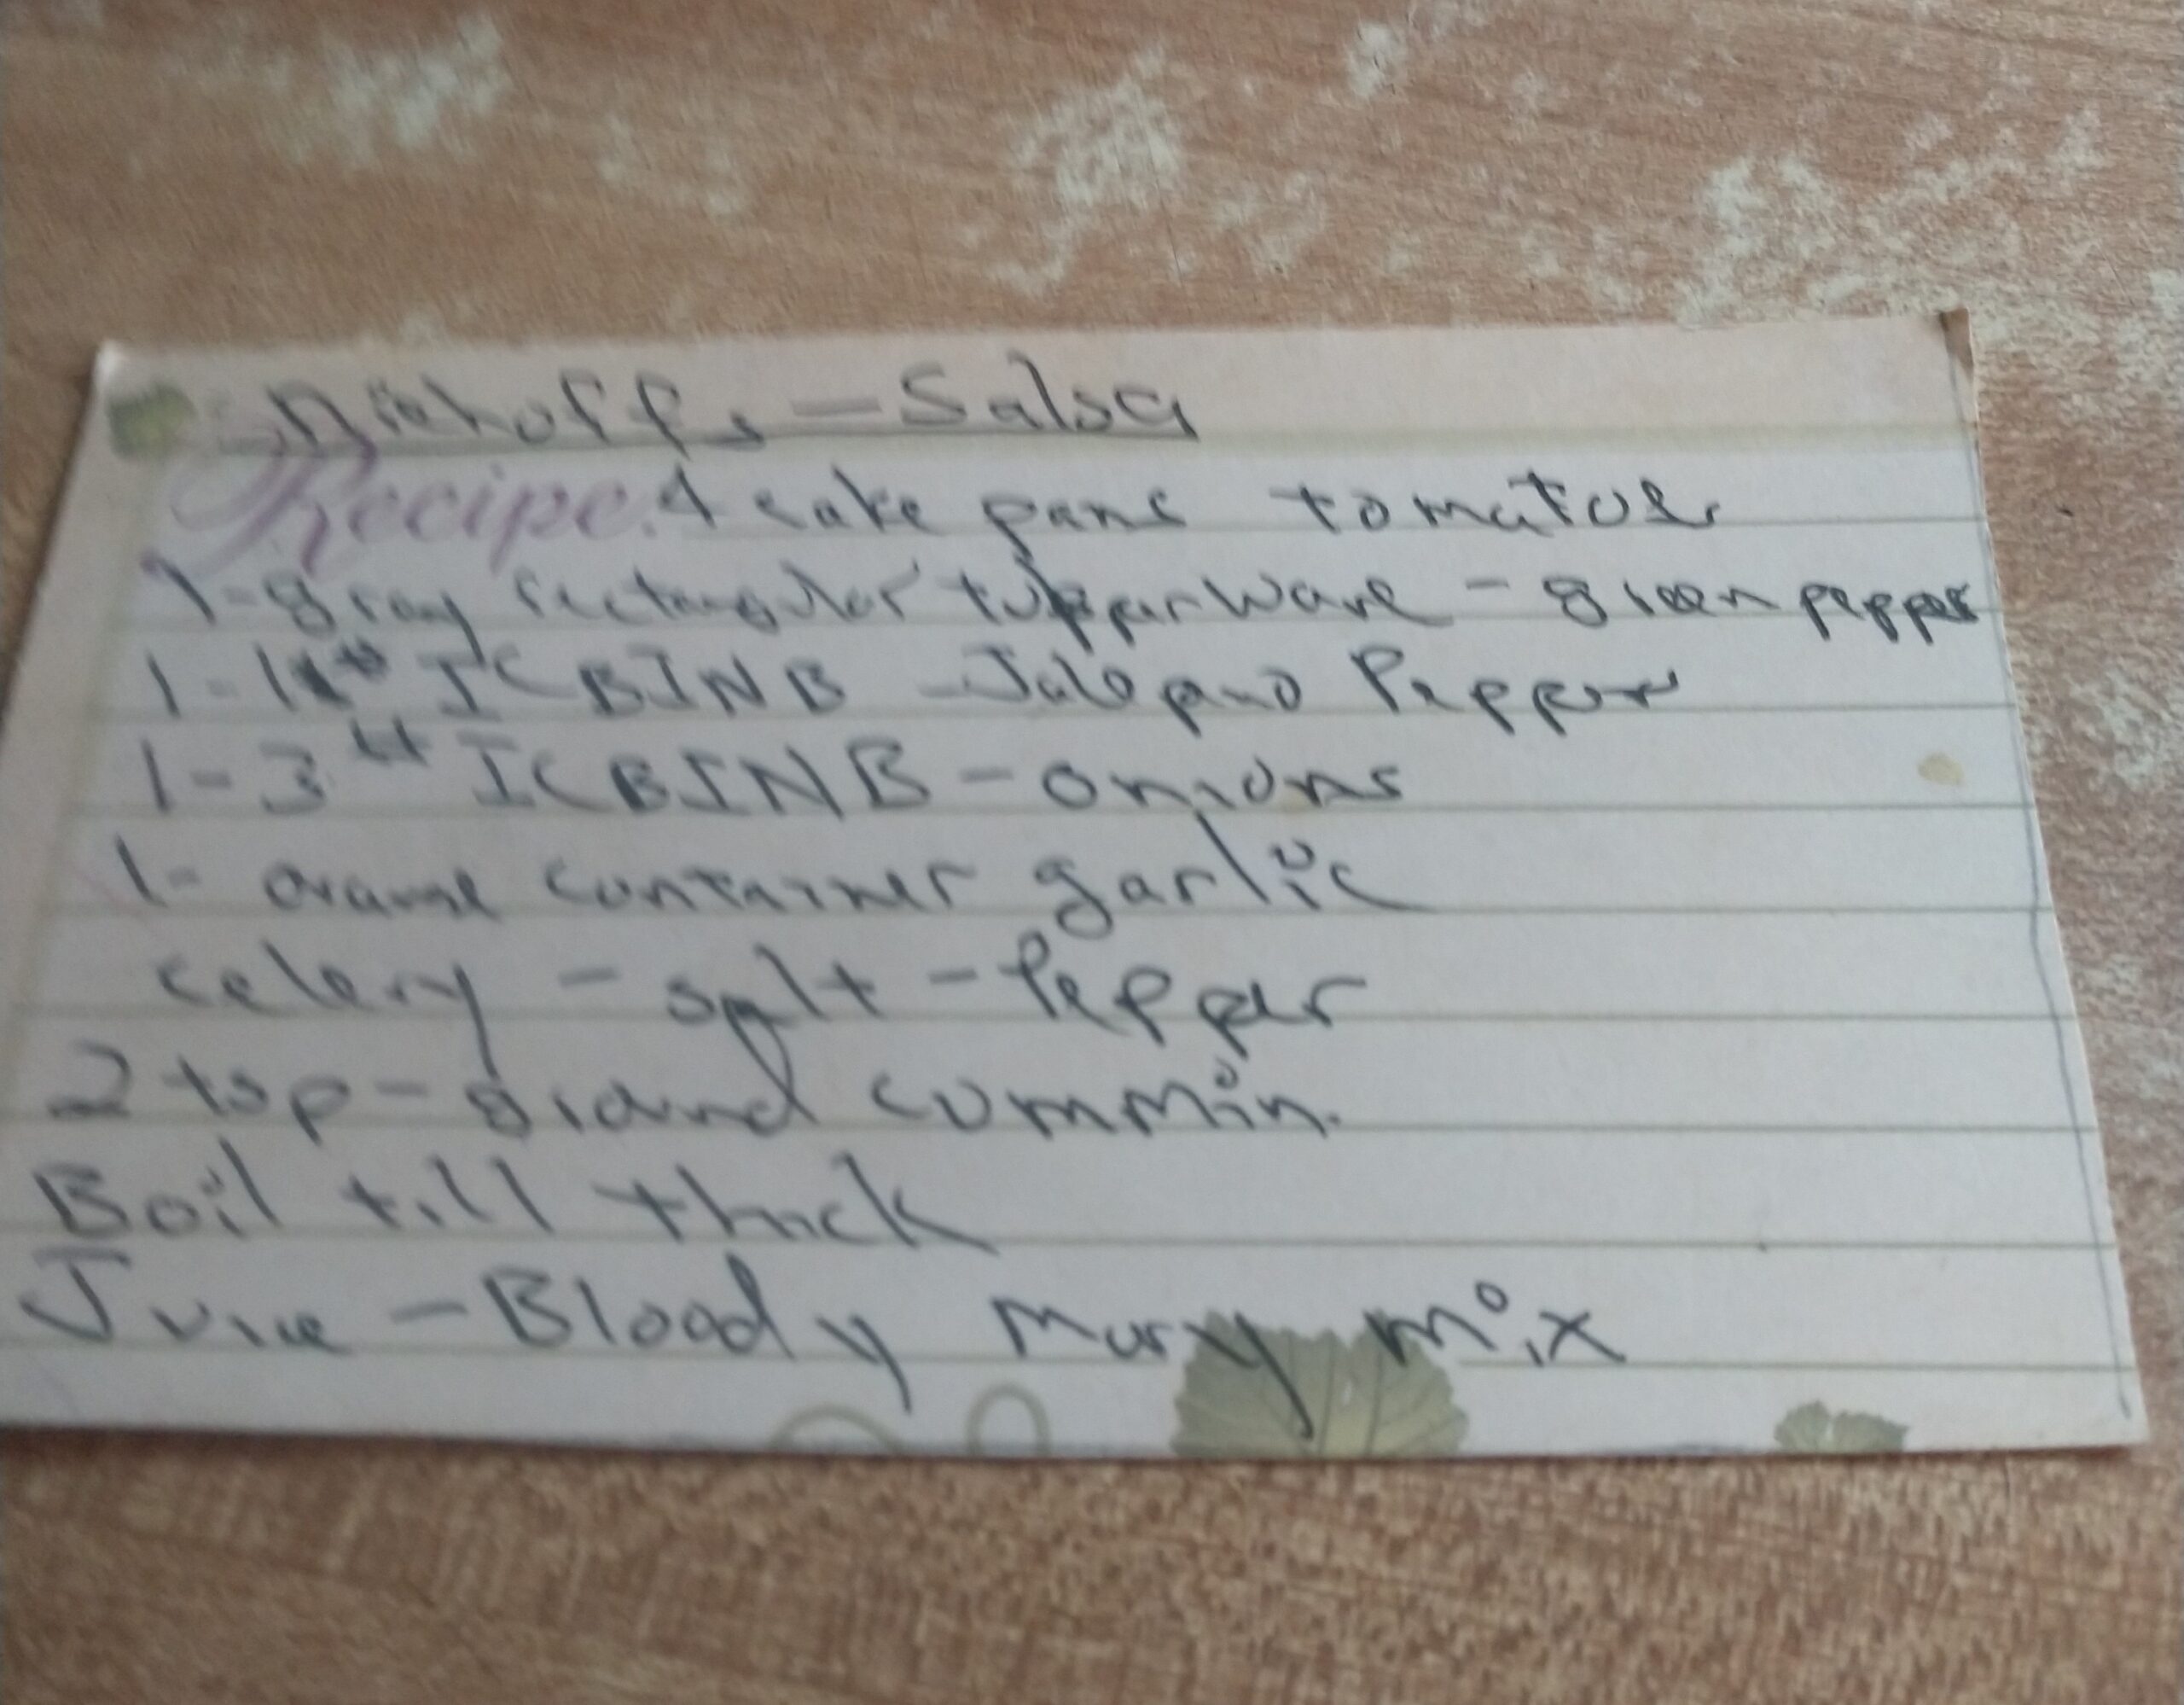 Niehoffs - Salsa
Recipe: 4 cake pans tomatoes
1 - gray rectangular tupperware - green pepper
1 - 1# ICBINB - Jalepeno Pepper
1 - 3# ICBINB - onions
1 - orange container garlic
celery - salt - Pepper
2 tsp - ground cummin.
Boil till thick
Juice - Bloody Mary mix